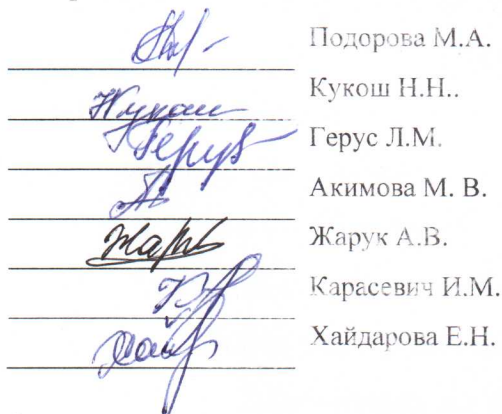 Подорова М.А.
Кукош Н.Н..
Герус Л.М.
Акимова М. В.
Жарук А.В.
Карасевич И.М.
Хайдарова Е.Н.